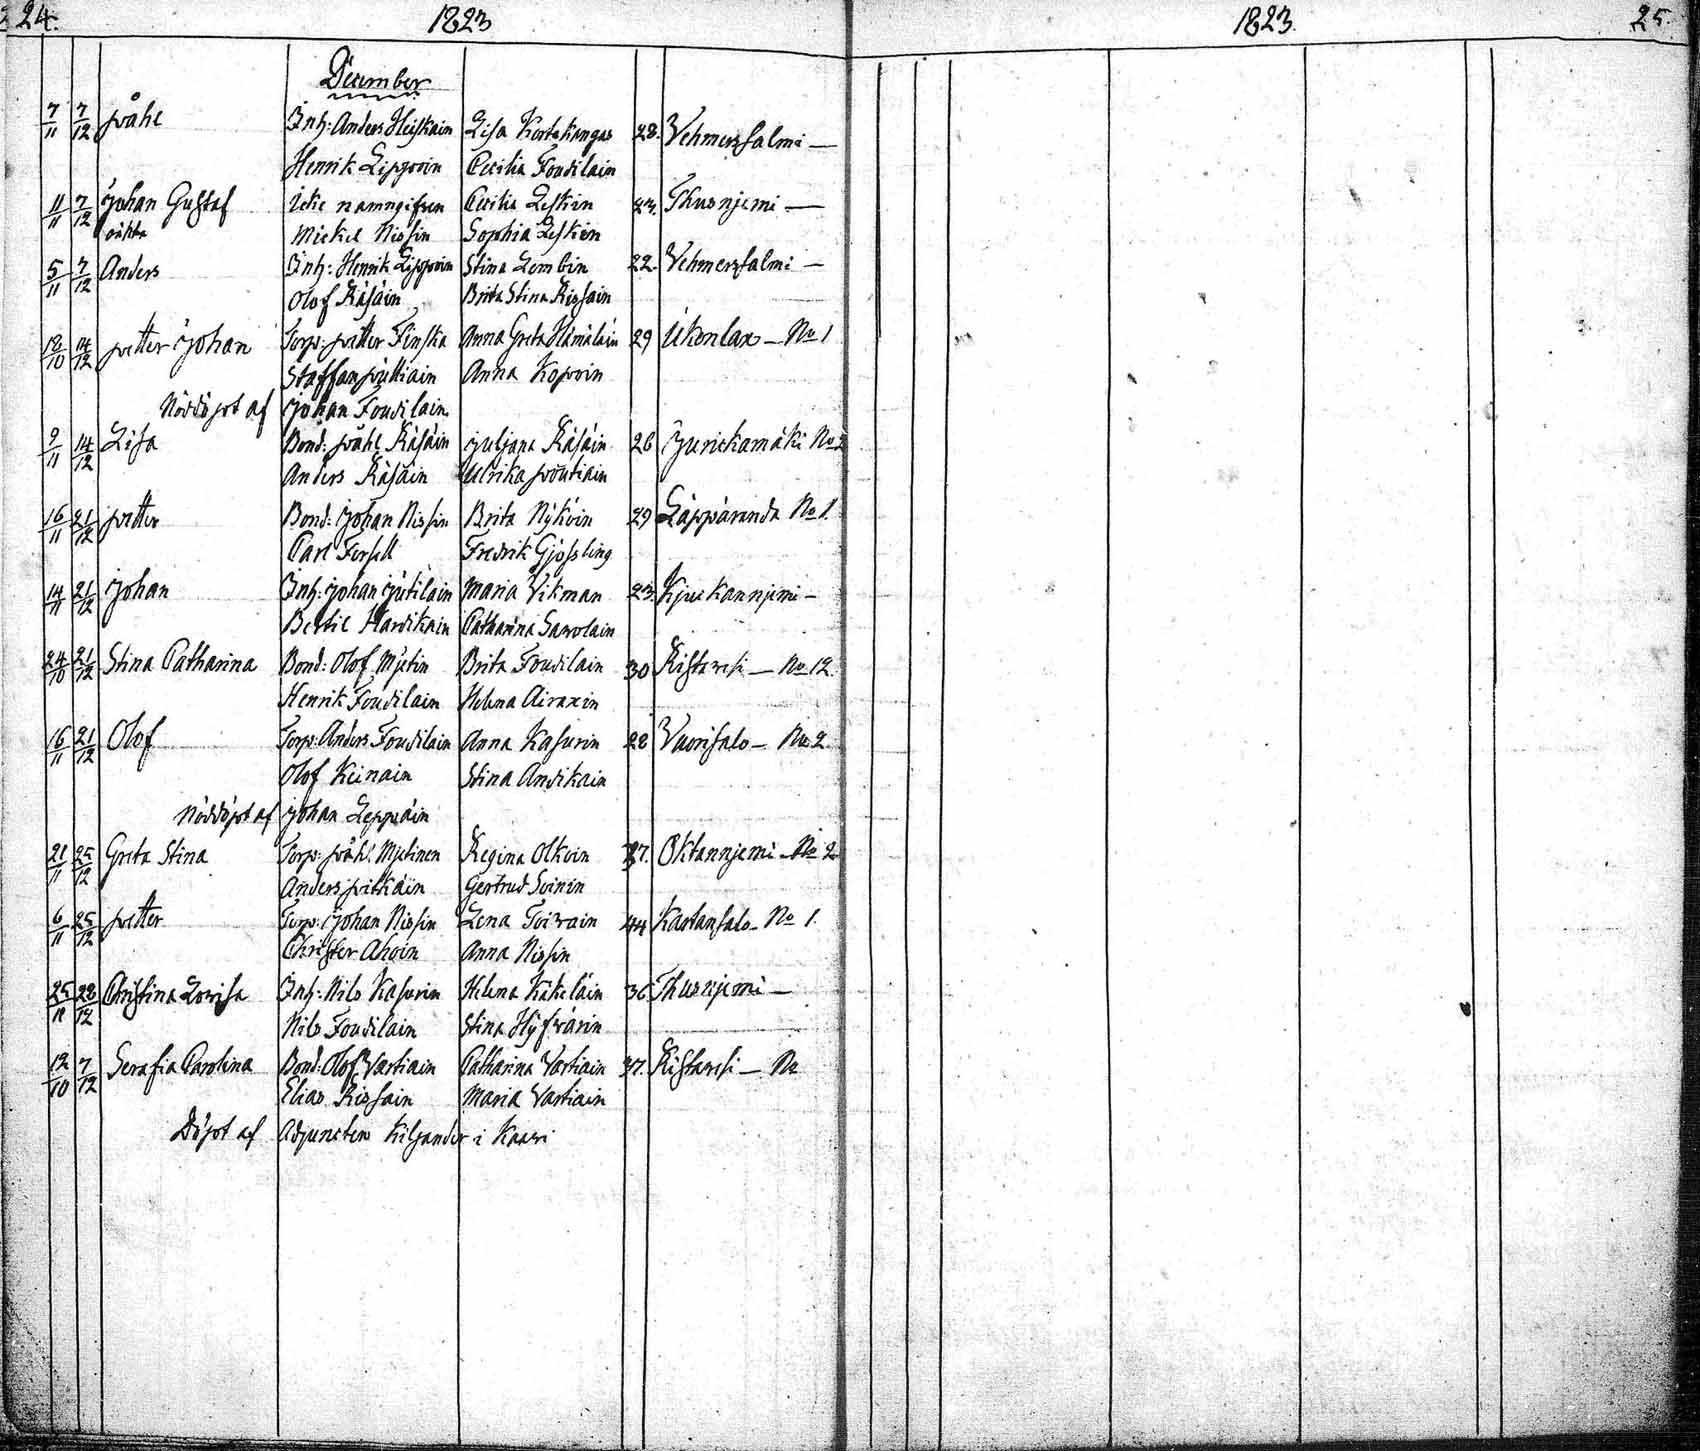 24. 1823
December
7/11 7/12 Påhl Inh: Anders Heiskain Lisa Kortekangas 28. Vehmersalmi —
Henrik Lippoin Cecilia Toudilain
11/11 7/12 Johan Gustaf Icke namngifven Cecilia Leskin 23. Thusnjemi —
oäkta Mickel Nissin Sophia Leskin
5/11 7/12 Anders Inh: Henrik Lippoin Stina Lembin 22. Vehmersalmi —
Olof Räsäin Brita Stina Rissain
12/10 14/12 Petter Johan Torp: Petter Finska Anna Greta Hämäläin 29 Ukonlax — No 1
Staffan Anna Kopoin
Nöddöpt af Johan Toudilain
9/11 14/12 Lisa Bond: Påhl Räsäin Juljana Räsäin 26 Jurickamäki No 2
Anders Räsäin Ulrika Poutiain
16/11 21/12 Petter Bond: Johan Nissin Brita Nyköin 29 Läppäranda No 1.
Carl Forsell Fredrik Gjössling
14/11 21/12 Johan Inh: Johan Jutilain Maria Vikman 23. Kjukannjemi —
Bertil Hardikain Catharina Savolain
24/10 21/12 Stina Catharina Bond: Olof Mjetin Brita Toudilain 30 Ristavesi — No 12.
Henrik Toudilain Helena Airaxin
16/11 21/12 Olof Torp: Anders Toudilain Anna Kasurin 28 Vuorisalo — No 2.
Olof Keinain Stina Andikain
Nöddöpt af Johan Leppäin
21/11 25/12 Greta Stina Torp: Påhl Mjetinen Regina Olkoin 37. Oktannjemi — No 2
Anders Pitkäin Gertrud Soinin
6/11 25/12 Petter Torp: Johan Nissin Lena Toivain 44 Kaatansalo — No 1.
Christer Ahoin Anna Nissin
25/11 28/12 Christina Lovisa Inh: Nils Kasurin Helena Käkeläin 36 Thusnjemi —
Nils Toudilain Stina Hyfvärin
12/10 7/12 Serafia Carolina Bond: Olof Vartiain Catharina Vartiain 37. Ristavesi — No
Elias Rissain Maria Vartiain
Döpt af Adjuncten Kiljander i Kaavi
1823. 25.